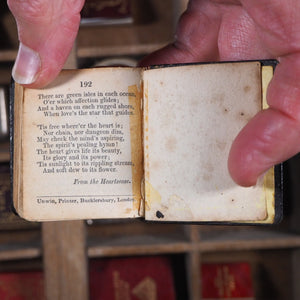 192
There are green isles in each ocean,
O'er which affection glides;
And a haven on each rugged shore,
When love's the star that guides.
'Tis free where'er the heart is;
Nor chain, nor dungeon dim,
May check the mind's aspiring,
The spirit's pealing hymn!
The heart gives life its beauty,
Its glory and its power;
'Tis sunlight to its rippling stream,
And soft dew to its flower.
From the Heartsease.
Unwin, Printer, Bucklersbury, London